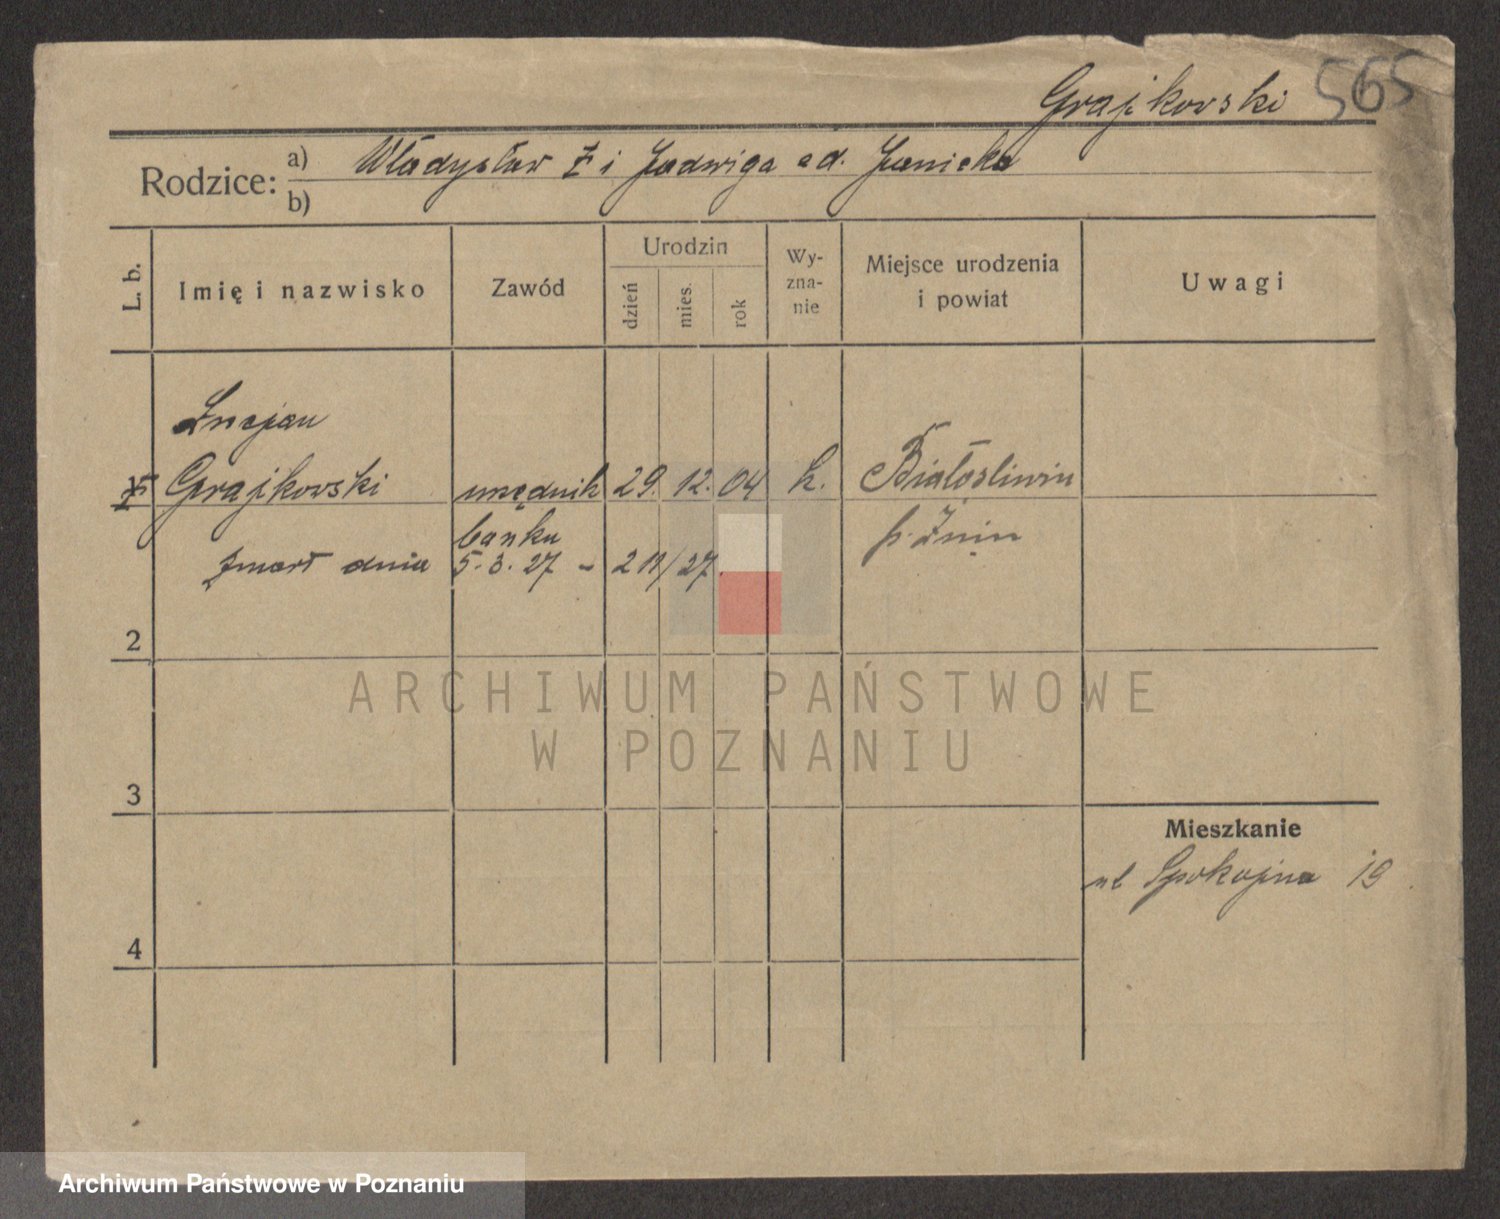 Grajkowski 565
Rodzice: a) Władysław i Jadwiga od. Janicka
b)
L. b.
Imię i nazwisko
Zawód
Urodzin
dzień
mies.
rok
Wy-
zna-
nie
Miejsce urodzenia
i powiat
Uwagi
Lucjan
Grajkowski urzędnik 29. 12. 04 k. Białośliwiu
banku p. Żnin
zmarł dnia 5. 3. 27 - 211/27
2
3
4
Mieszkanie
ul Spokojna 19
ARCHIWUM PAŃSTWOWE
W POZNANIU
Archiwum Państwowe w Poznaniu